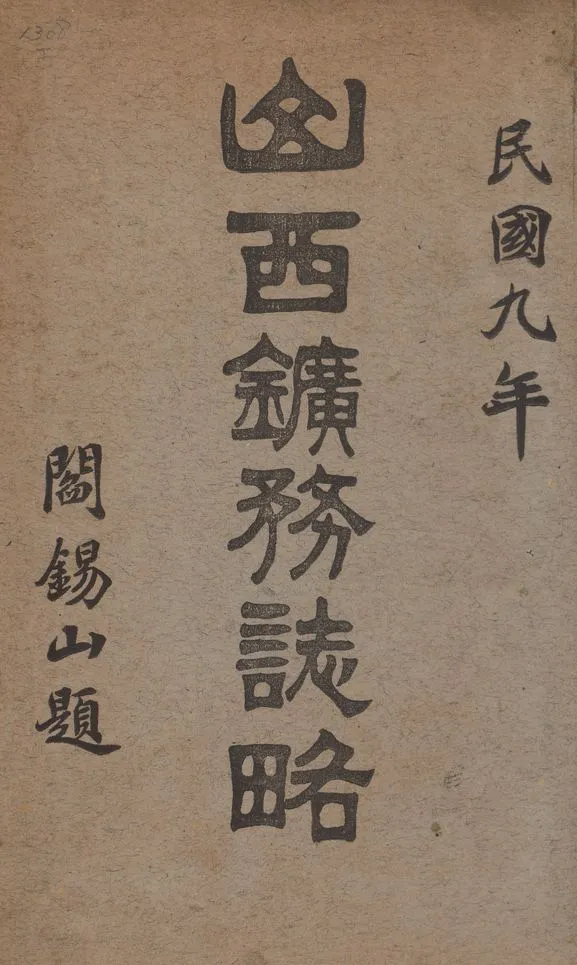 民國九年
山西鑛務誌略
閻錫山題